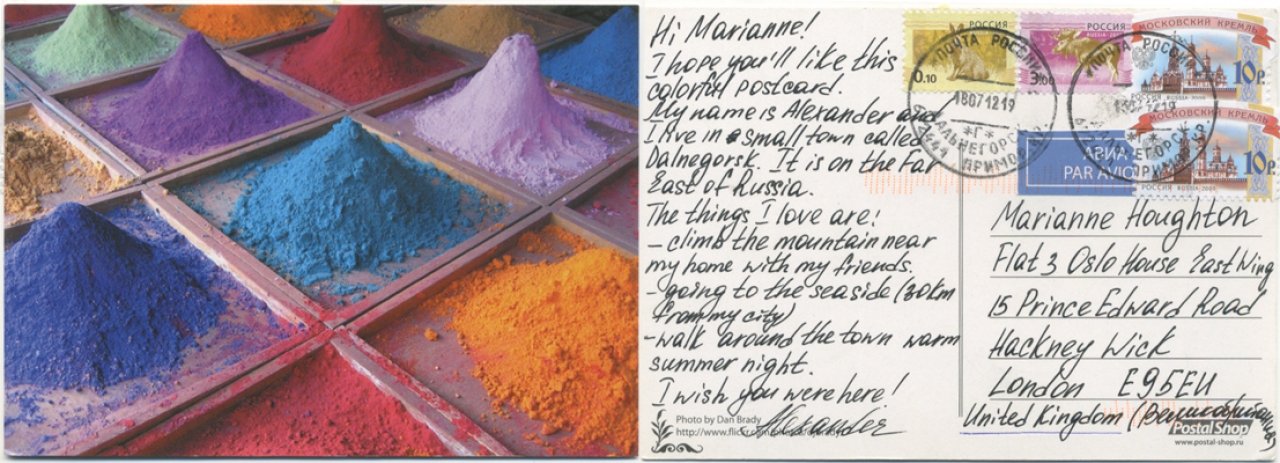 Hi Marianne!
I hope you'll like this
colorful postcard.
My name is Alexander and
I live in a small town called
Dalnegorsk. It is on the Far
East of Russia.
The things I love are:
- climb the mountain near
my home with my friends.
- going to the seaside (30km
from my city)
- walk around the town warm
summer night.
I wish you were here!
Alexander
Photo by Dan Brady
РОССИЯ
0.10
РОССИЯ
RUSSIA
3.00
МОСКОВСКИЙ КРЕМЛЬ
10Р.
РОССИЯ
МОСКОВСКИЙ КРЕМЛЬ
10Р.
РОССИЯ RUSSIA 2009
ПОЧТА РОССИИ
18071219
*Г*
ДАЛЬНЕГОРСК
ПРИМОР
ПОЧТА РОССИИ
*Г*
АВИА
PAR AVION
Marianne Houghton
Flat 3 Oslo House East Wing
15 Prince Edward Road
Hackney Wick
London E95EU
United Kingdom (Великобритания)
Postal Shop
www.postal-shop.ru